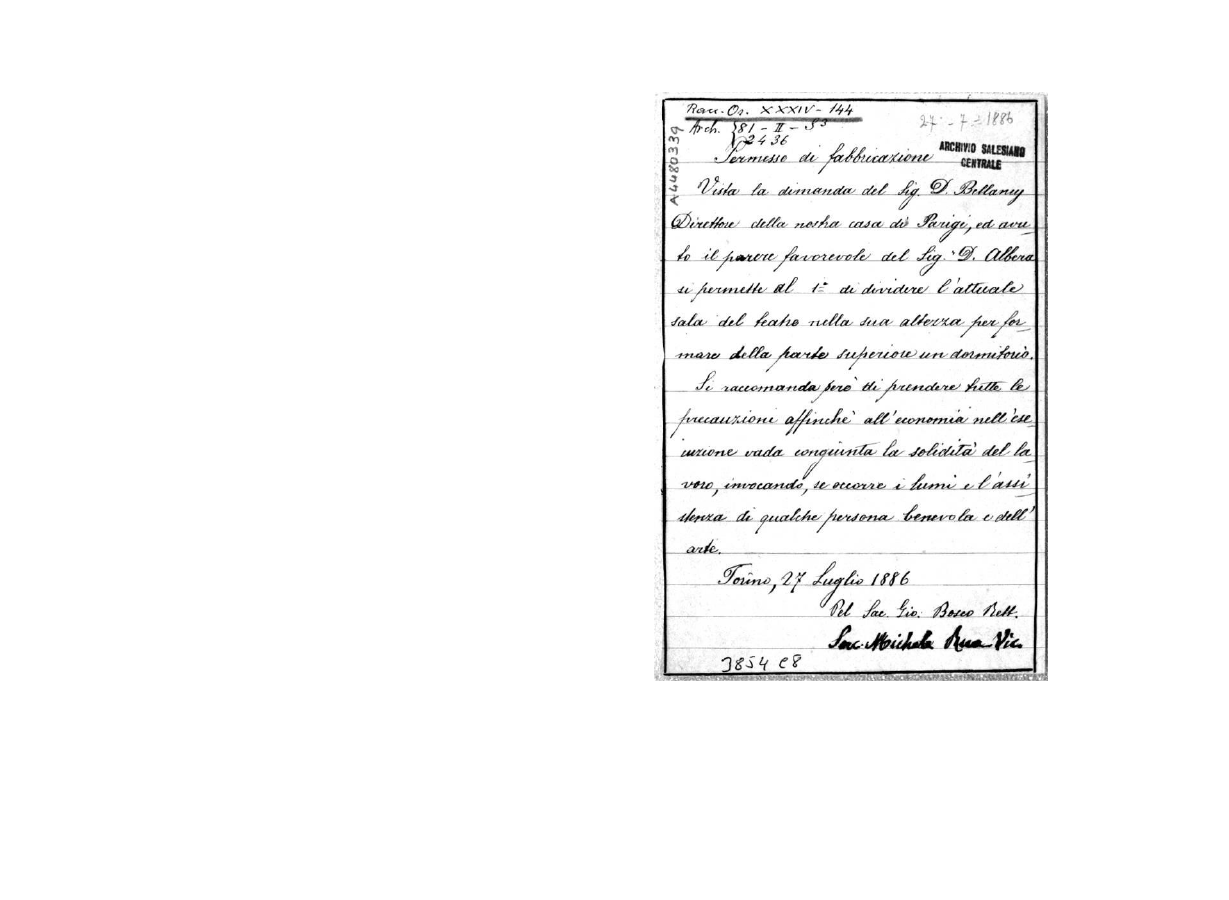 Racc. Or. XXXIV - 144
27 - 7 = 1886
Arch. 81 - II - S3
2436
A4480339
ARCHIVIO SALESIANO
CENTRALE
Permesso di fabbricazione
Vista la dimanda del Sig. D. Bellamy
Direttore della nostra casa di Parigi, ed avu_
to il parere favorevole del Sig. D. Albera
si permette al 1º di dividere l'attuale
sala del teatro nella sua altezza per for_
mare della parte superiore un dormitorio.
Si raccomanda però di prendere tutte le
precauzioni affinchè all'economia nell'ese_
cuzione vada congiunta la solidità del la_
voro, invocando, se occorre i lumi e l'assi_
stenza di qualche persona benevola e dell'
arte.
Torino, 27 Luglio 1886
Pel Sac. Gio. Bosco Rett.
Sac. Michele Rua Vic.
3854 C8